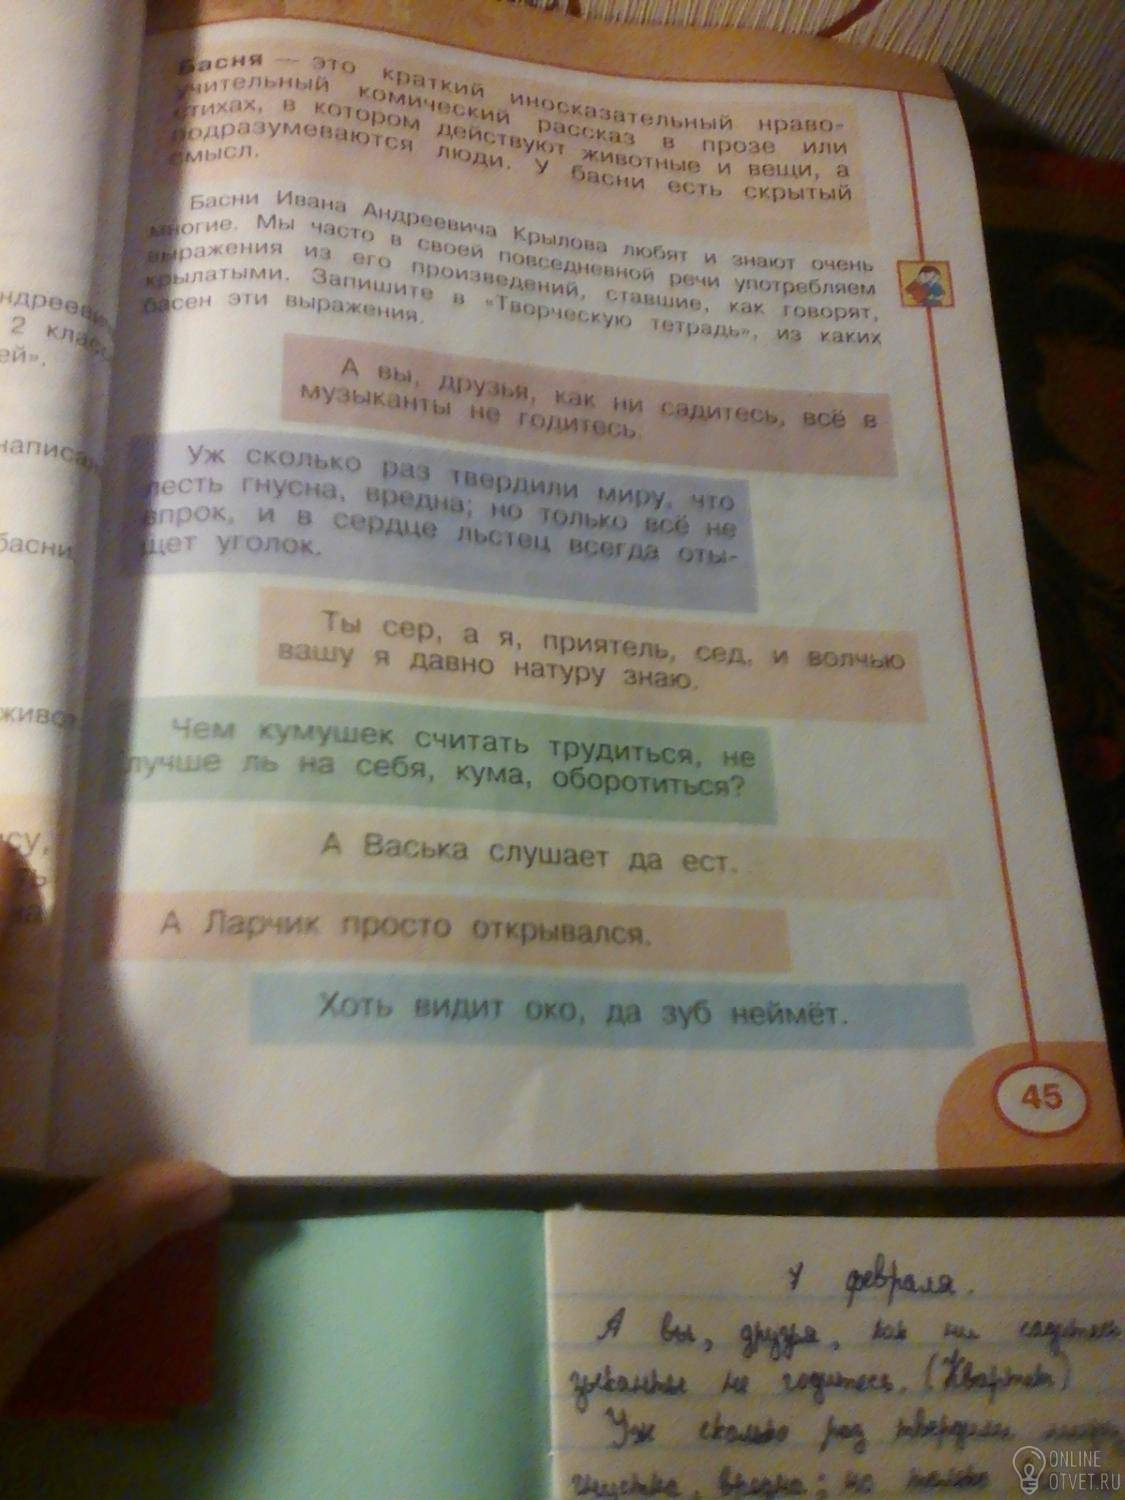 Басня — это краткий иносказательный нраво-
учительный комический рассказ в прозе или
стихах, в котором действуют животные и вещи, а
подразумеваются люди. У басни есть скрытый
смысл.
Басни Ивана Андреевича Крылова любят и знают очень
многие. Мы часто в своей повседневной речи употребляем
выражения из его произведений, ставшие, как говорят,
крылатыми. Запишите в «Творческую тетрадь», из каких
басен эти выражения.
А вы, друзья, как ни садитесь, всё в
музыканты не годитесь.
Уж сколько раз твердили миру, что
лесть гнусна, вредна; но только всё не
впрок, и в сердце льстец всегда оты-
щет уголок.
Ты сер, а я, приятель, сед, и волчью
вашу я давно натуру знаю.
Чем кумушек считать трудиться, не
лучше ль на себя, кума, оборотиться?
А Васька слушает да ест.
А Ларчик просто открывался.
Хоть видит око, да зуб неймёт.
45
ндреевич
2 класс
ей».
написан
басни
живот
су,
ть
на
7 февраля.
А вы, друзья, как ни садитесь
зыканты не годитесь. (Квартет)
Уж сколько раз твердили миру
гнусна, вредна; но только
ONLINE
OTVET.RU